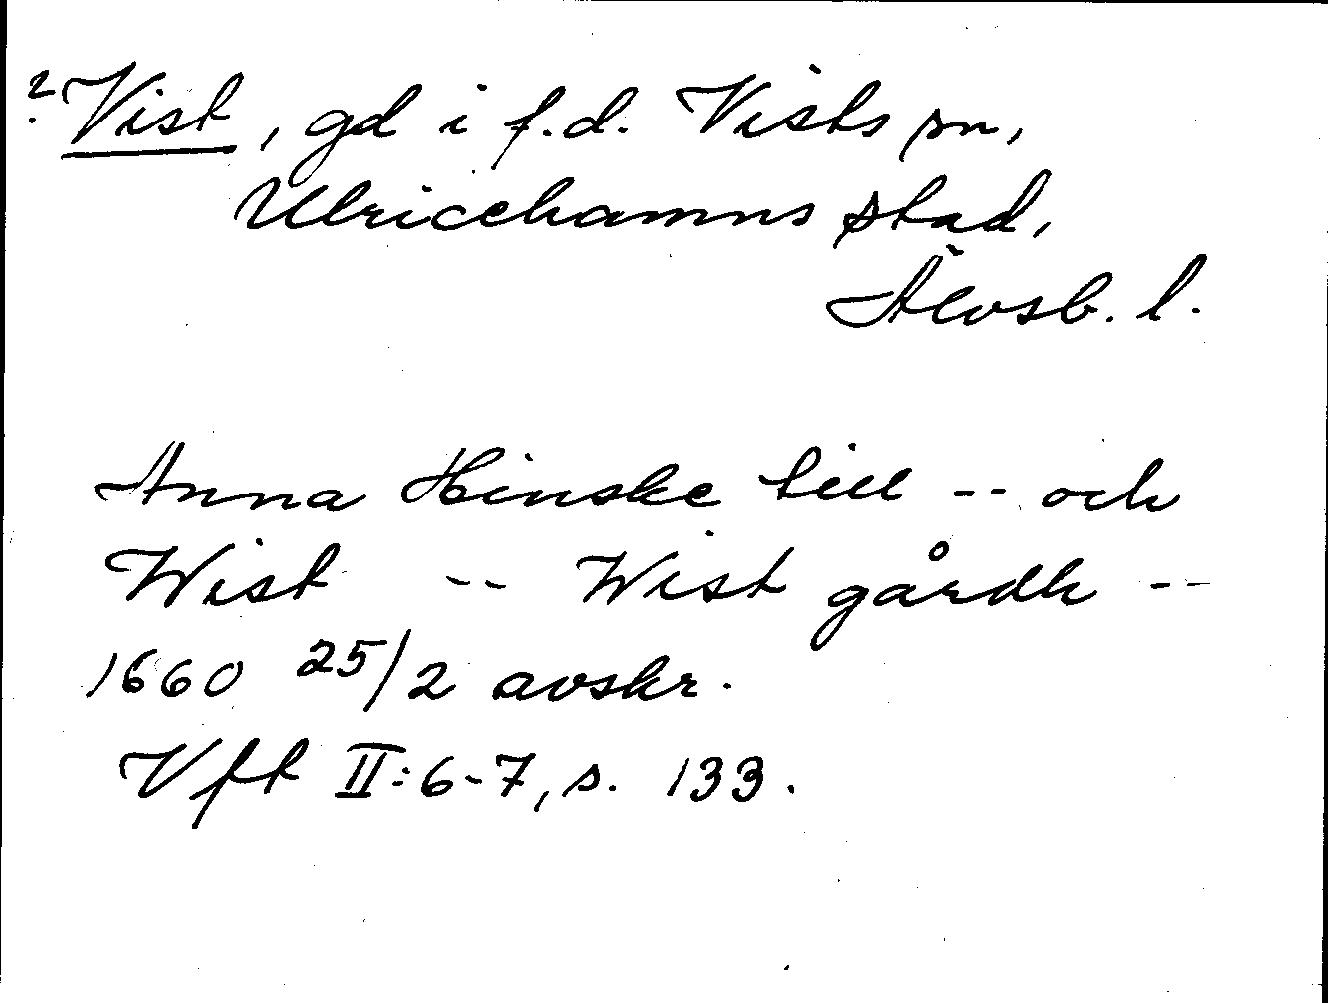 ? Vist, gd i f.d. Vists sn,
Ulricehamns stad,
Älvsb. l.
Anna Hinske till -- och
Wist -- Wist gårdh --
1660 25/2 avskr.
Vft II:6-7, s. 133.